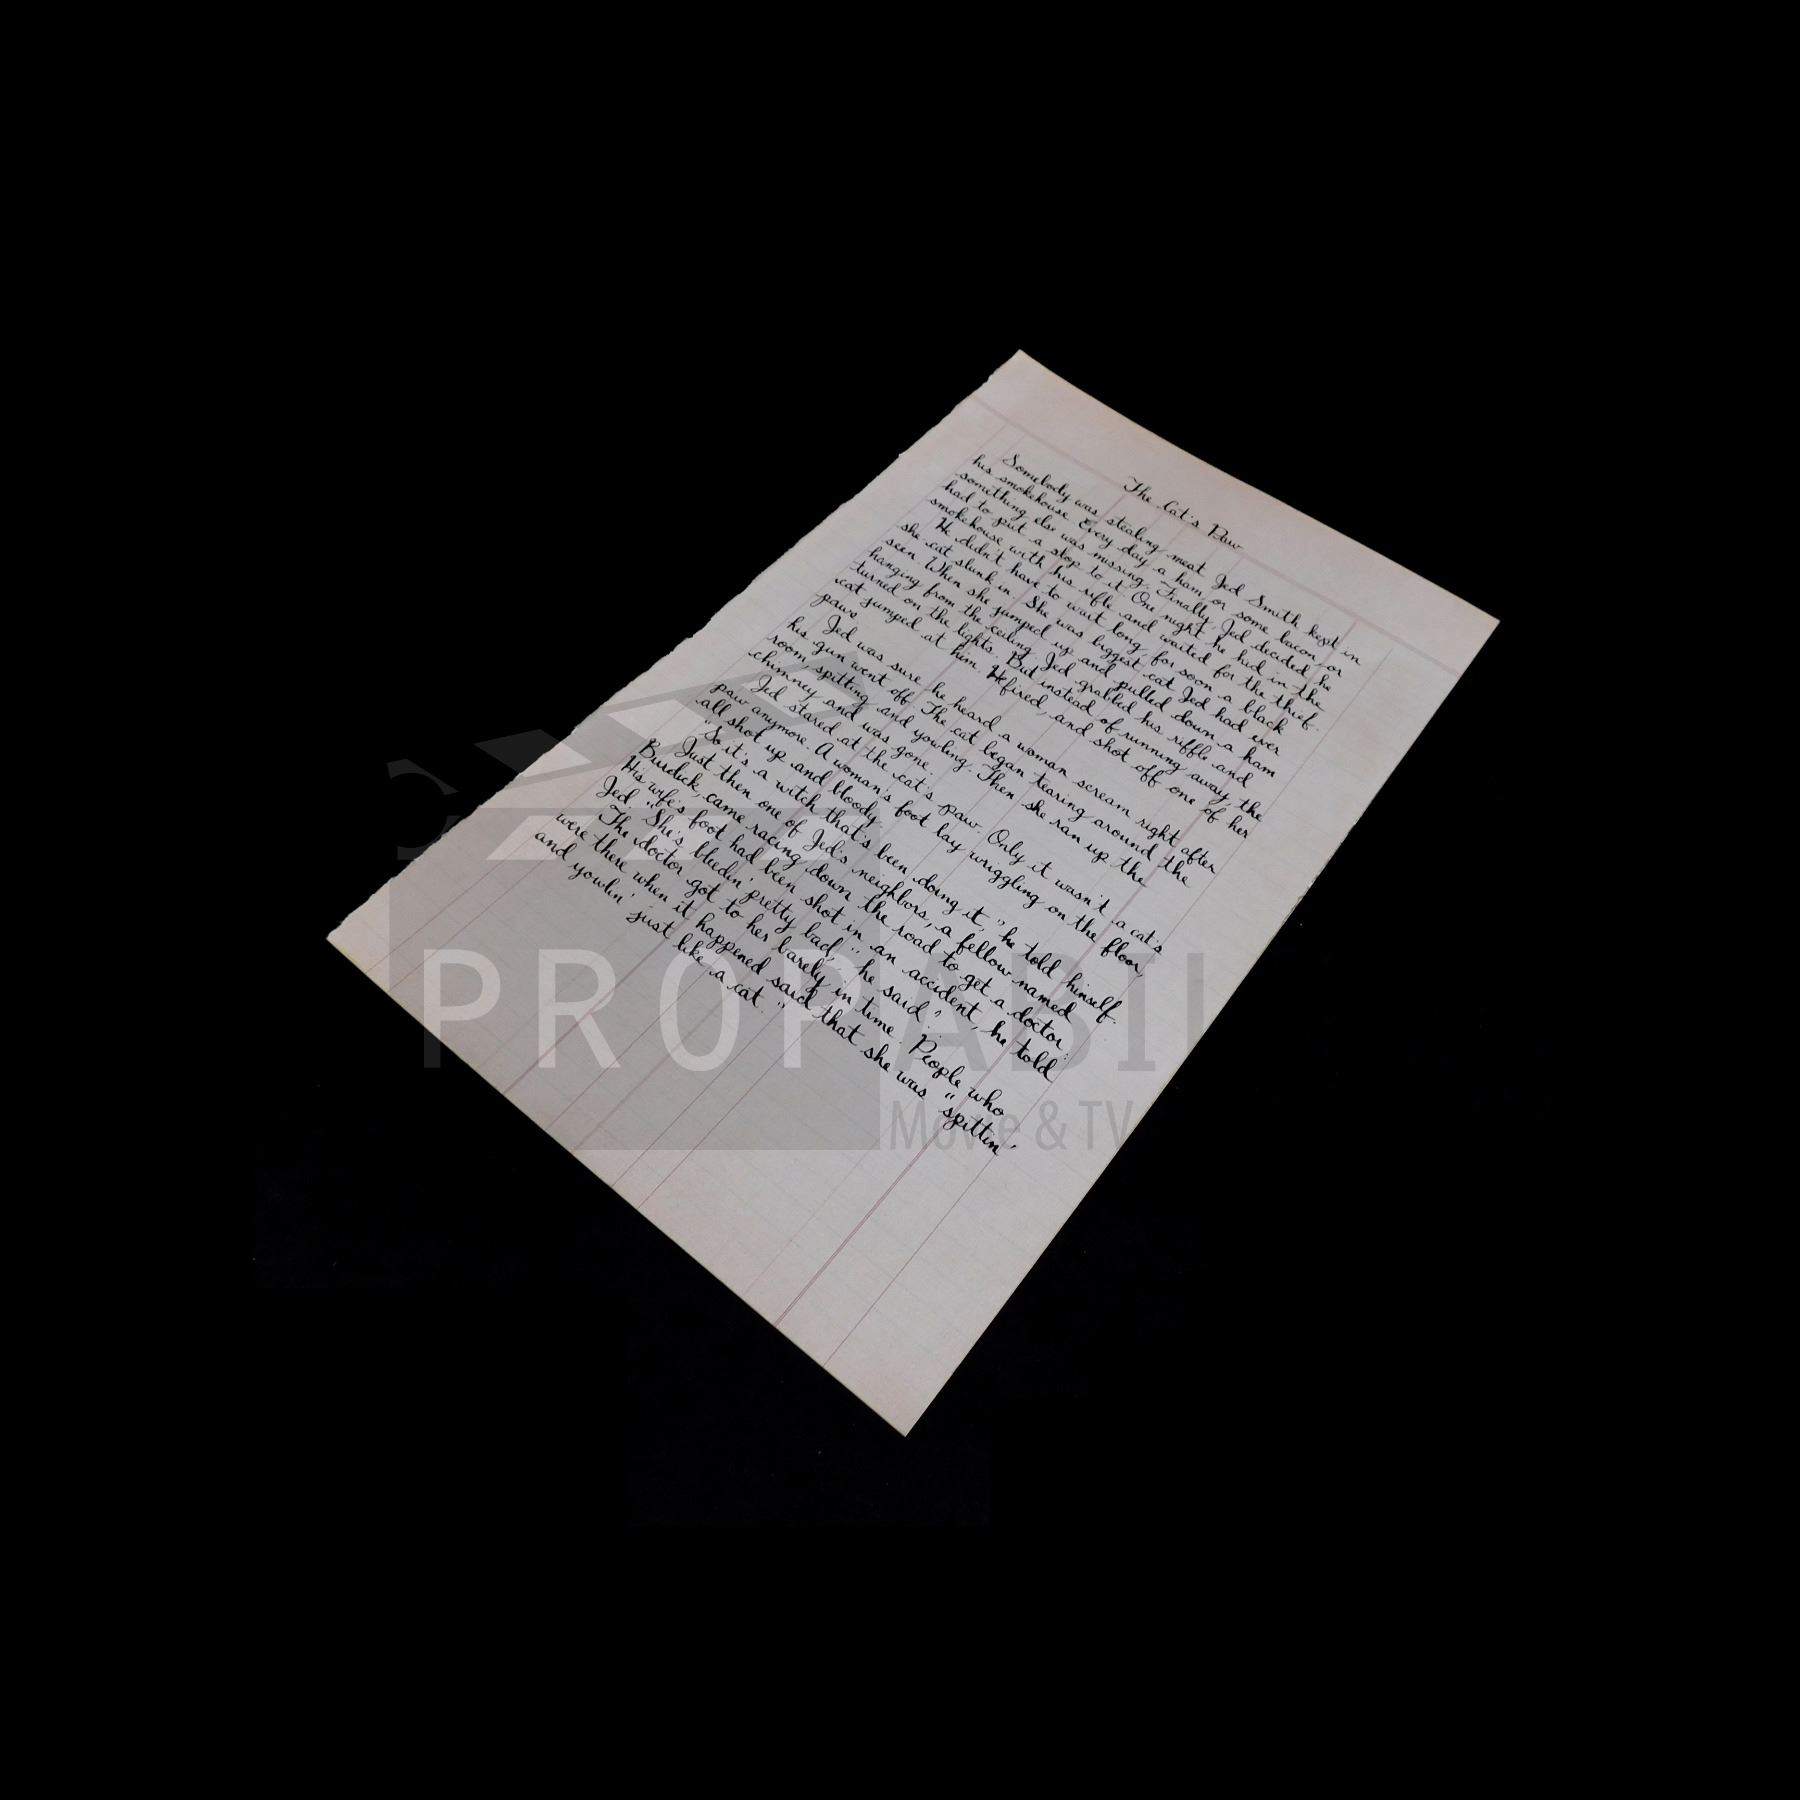 The Cat's Paw
Somebody was stealing meat Jed Smith kept in
his smokehouse. Every day a ham or some bacon or
something else was missing. Finally, Jed decided he
had to put a stop to it. One night he hid in the
smokehouse with his rifle and waited for the thief.
He didn't have to wait long, for soon a black
she cat slunk in. She was biggest cat Jed had ever
seen. When she jumped up and pulled down a ham
hanging from the ceiling, Jed grabbed his riffle and
turned on the lights. But instead of running away, the
cat jumped at him. He fired, and shot off one of her
paws
Jed was sure he heard a woman scream right after
his gun went off. The cat began tearing around the
room, spitting and yowling. Then she ran up the
chimney and was gone.
Jed stared at the cat's paw. Only it wasn't a cat's
paw anymore. A woman's foot lay wriggling on the floor,
all shot up and bloody.
"So it's a witch that's been doing it," he told himself.
Just then one of Jed's neighbors, a fellow named
Burdick, came racing down the road to get a doctor.
His wife's foot had been shot in an accident, he told
Jed "She's bleedin' pretty bad," he said."
The doctor got to her barely in time. People who
were there when it happened said that she was "spittin'
and yowlin' just like a cat."
PROPABI
Movie & TV